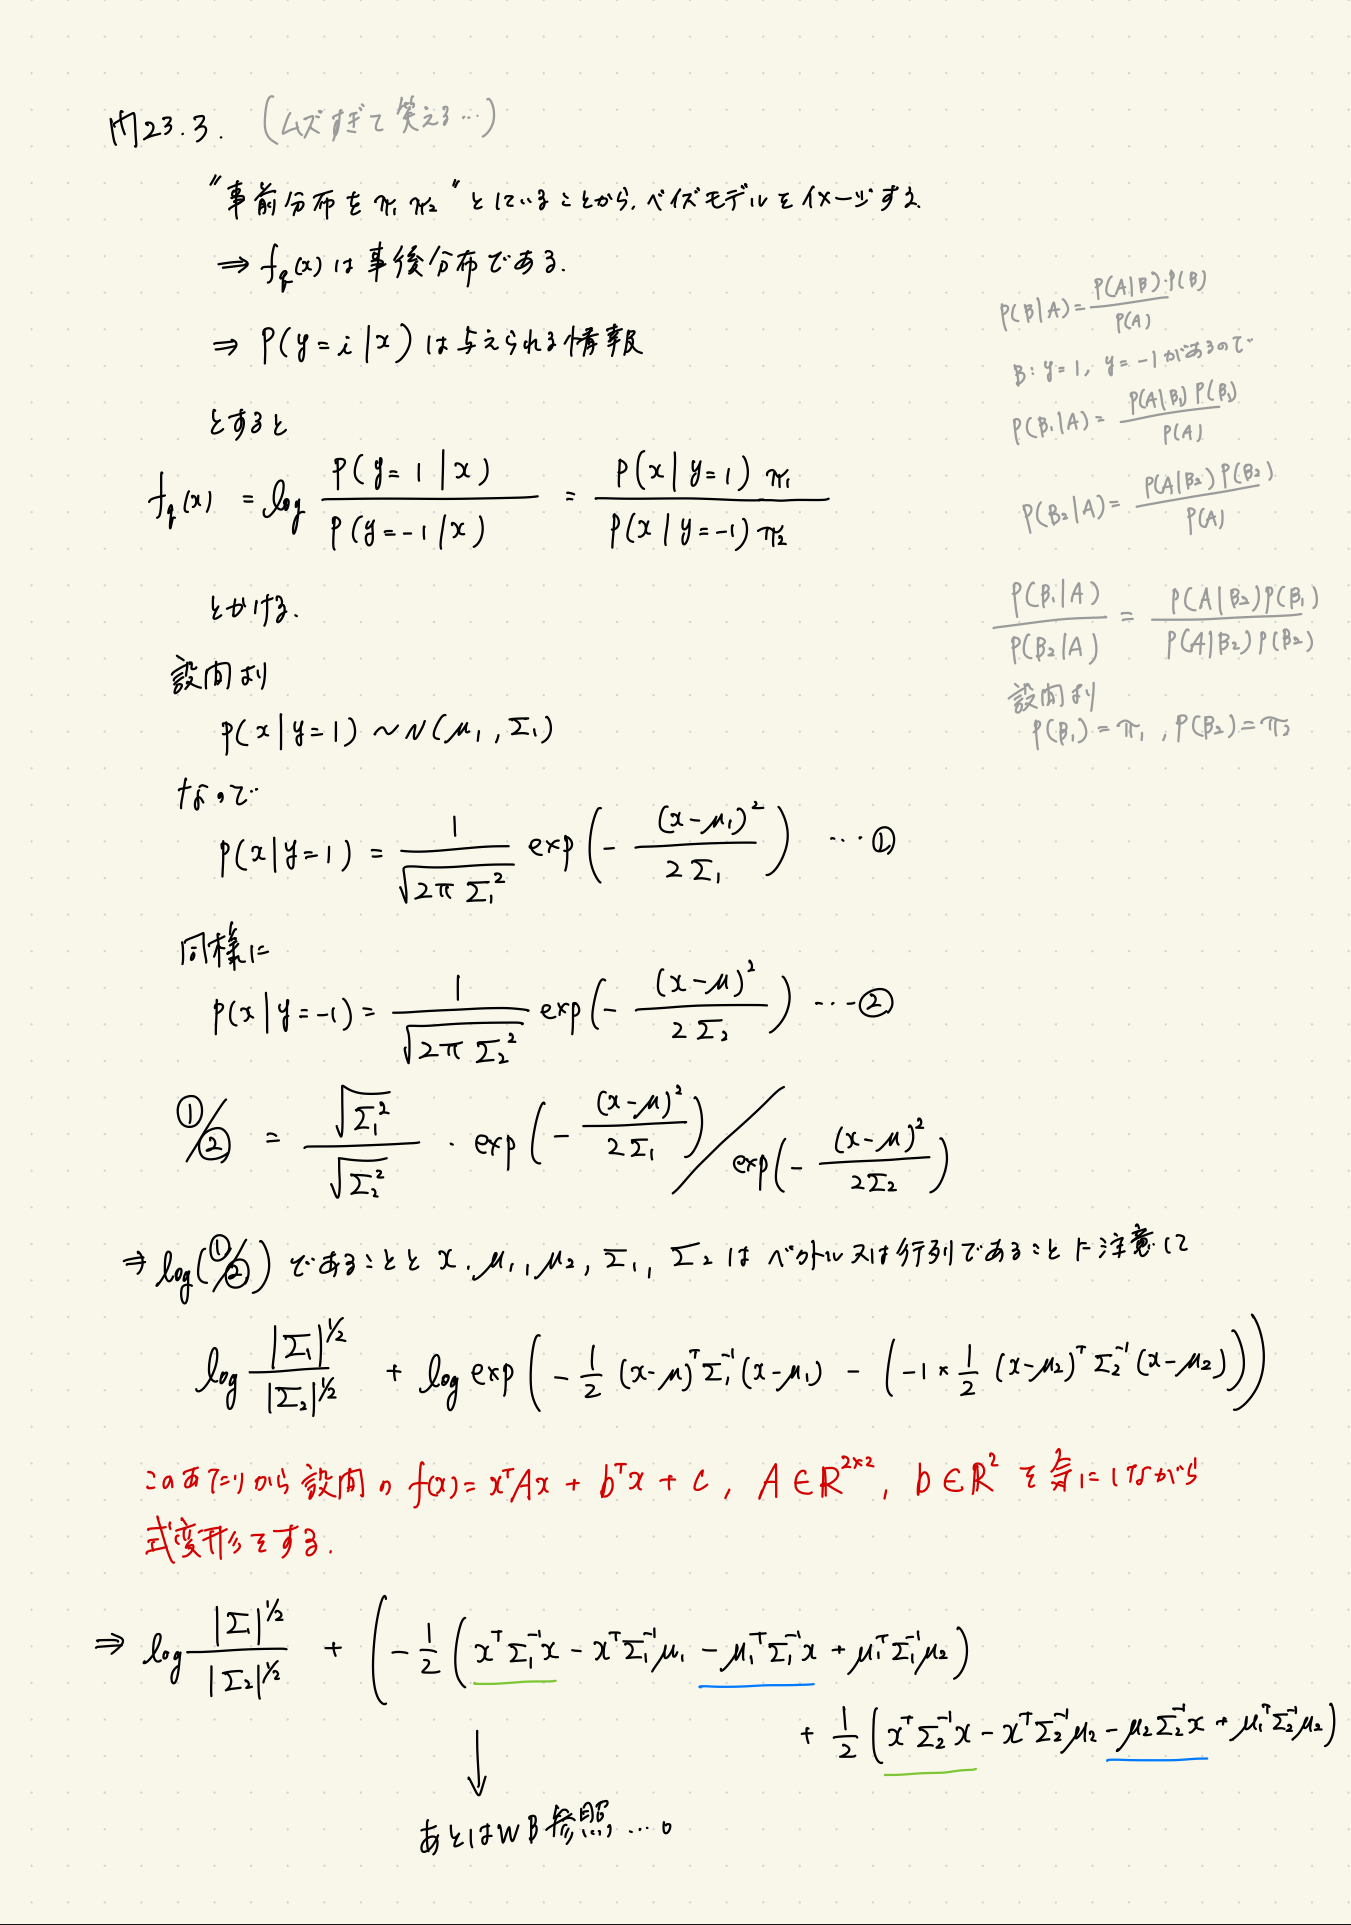 問23.3. (ムズすぎて笑える…)
"事前分布をπ₁ π₂"としていることから、ベイズモデルをイメージする
⇒ f_q(x) は事後分布である.
⇒ P(y=i|x) は与えられる情報
とすると
f_q(x) = log P(y=1|x) / P(y=-1|x) = P(x|y=1)π₁ / P(x|y=-1)π₂
とかける.
設問より
P(x|y=1) ~ N(μ₁, Σ₁)
なので
P(x|y=1) = 1/√(2πΣ₁²) exp(-(x-μ₁)²/2Σ₁) …①
同様に
P(x|y=-1) = 1/√(2πΣ₂²) exp(-(x-μ)²/2Σ₂) …②
①/② = √Σ₁²/√Σ₂² · exp(-(x-μ)²/2Σ₁) / exp(-(x-μ)²/2Σ₂)
⇒ log(①/②) であることと x, μ₁, μ₂, Σ₁, Σ₂ は ベクトル又は行列であることに注意して
log |Σ₁|^½/|Σ₂|^½ + log exp(-1/2 (x-μ)ᵀΣ₁⁻¹(x-μ₁) - (-1×1/2 (x-μ₂)ᵀΣ₂⁻¹(x-μ₂)))
このあたりから設問の f(x)=xᵀAx + bᵀx + c, A∈R^{2×2}, b∈R² を気にしながら
式変形をする.
⇒ log |Σ₁|^½/|Σ₂|^½ + (-1/2 (xᵀΣ₁⁻¹x - xᵀΣ₁⁻¹μ₁ - μ₁ᵀΣ₁⁻¹x + μ₁ᵀΣ₁⁻¹μ₂)
+ 1/2 (xᵀΣ₂⁻¹x - xᵀΣ₂⁻¹μ₂ - μ₂Σ₂⁻¹x + μ₁ᵀΣ₂⁻¹μ₂)
↓
あとはWB参照…。
P(B|A) = P(A|B)·P(B) / P(A)
B: y=1, y=-1があるので
P(B₁|A) = P(A|B₁)P(B₁) / P(A)
P(B₂|A) = P(A|B₂)P(B₂) / P(A)
P(B₁|A) / P(B₂|A) = P(A|B₂)P(B₁) / P(A|B₂)P(B₂)
設問より
P(B₁)=π₁, P(B₂)=π₂